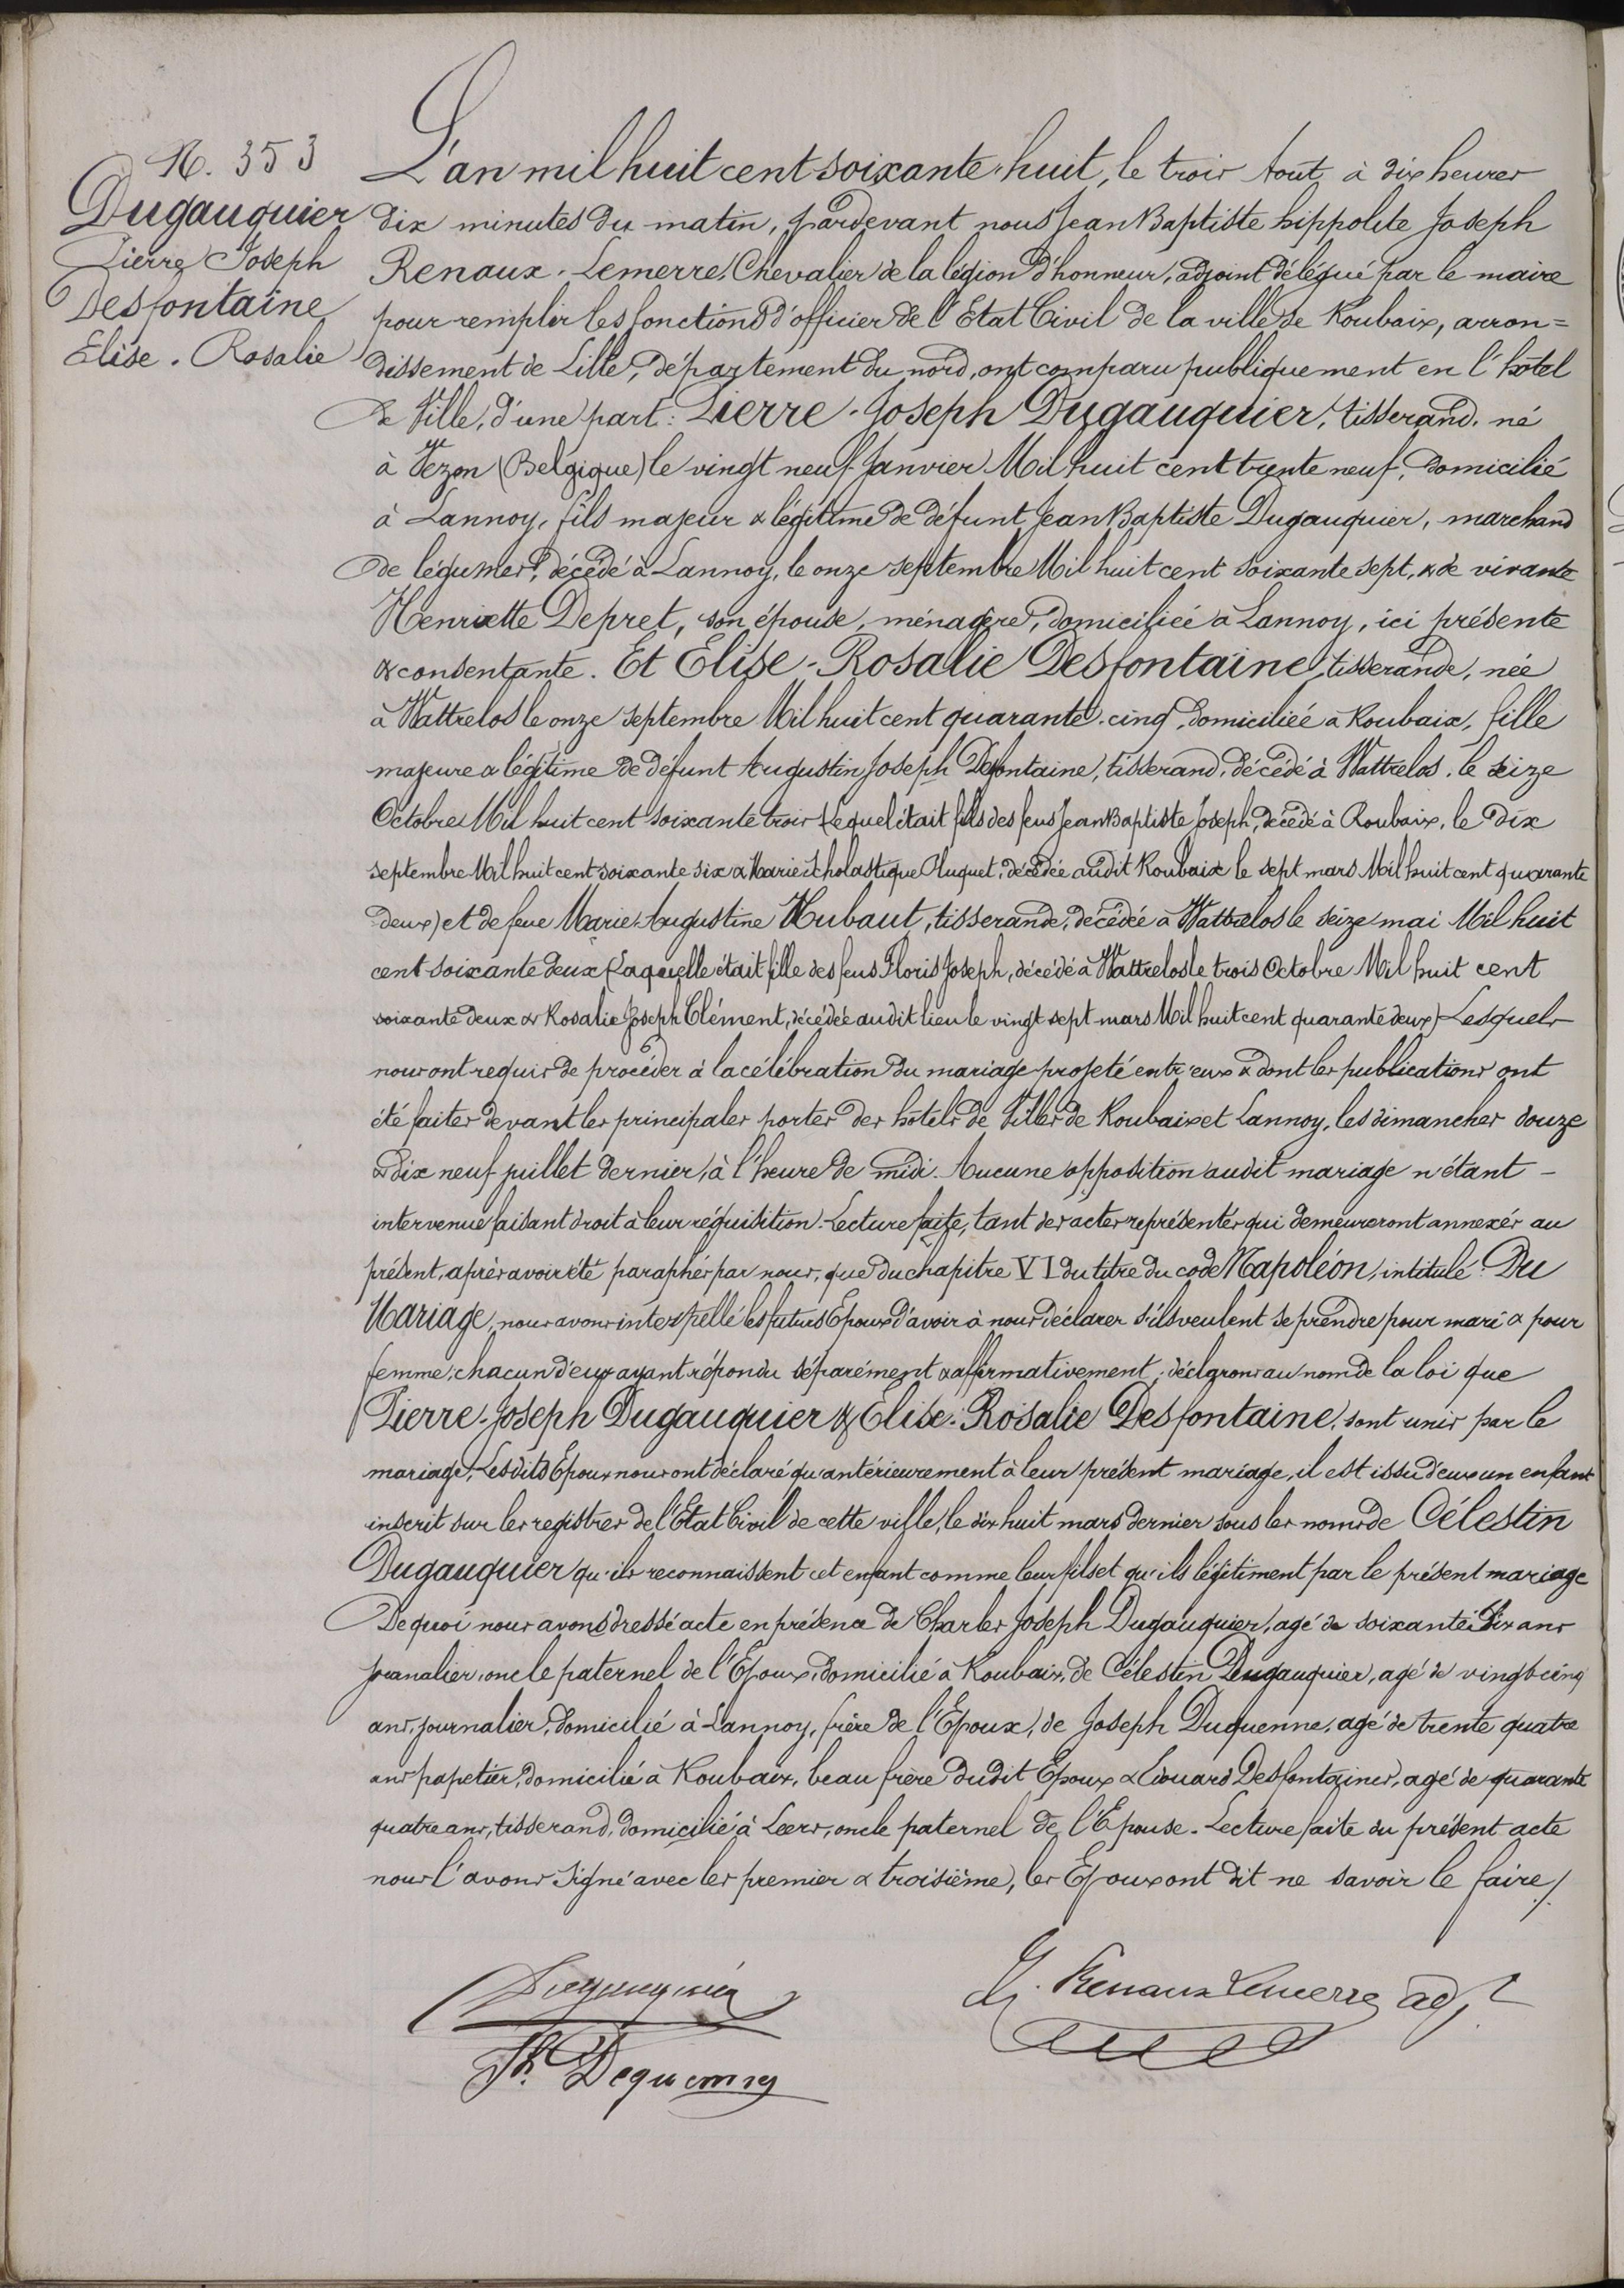 N. 353
Dugauquier
Pierre Joseph
Desfontaine
Elise. Rosalie
L'an mil huit cent soixante-huit, le trois Aout, à dix heures
dix minutes du matin, pardevant nous Jean Baptiste hippolite Joseph
Renaux-Lemerre, Chevalier de la légion d'honneur, adjoint délégué par le maire
pour remplir les fonctions d'officier de l'Etat Civil de la ville de Roubaix, arron=
dissement de Lille, département du nord, ont comparu publiquement en l'hôtel
de Ville, d'une part: Pierre-Joseph Dugauquier, tisserand, né
à Vezon (Belgique) le vingt neuf Janvier Mil huit cent trente neuf, domicilié
à Lannoy, fils majeur & légitime de défunt Jean Baptiste Dugauquier, marchand
de légumes, décédé à Lannoy, le onze septembre Mil huit cent soixante sept, & de vivante
Henriette Depret, son épouse, ménagère, domiciliée à Lannoy, ici présente
& consentante. Et Elise-Rosalie Desfontaine, tisserande, née
à Wattrelos le onze septembre Mil huit cent quarante-cinq, domiciliée à Roubaix, fille
majeure & légitime de défunt Augustin Joseph Desfontaine, tisserand, décédé à Wattrelos, le seize
Octobre Mil huit cent soixante trois (Lequel était fils des feus Jean Baptiste Joseph, décédé à Roubaix, le dix
septembre Mil huit cent soixante six & Marie Scholastique Cluquet, décédée audit Roubaix le sept mars Mil huit cent quarante
deux) et de feue Marie-Augustine Hubaut, tisserande, décédée à Wattrelos le seize mai Mil huit
cent soixante deux (Laquelle était fille des feus Floris Joseph, décédé à Wattrelos le trois Octobre Mil huit cent
soixante deux & Rosalie Joseph Clément, décédée audit lieu le vingt sept mars Mil huit cent quarante deux) Lesquels
nous ont requis de procéder à la célébration du mariage projeté entr'eux & dont les publications ont
été faites devant les principales portes des hôtels de Villes de Roubaix et Lannoy, les dimanches douze
& dix neuf juillet dernier, à l'heure de midi. Aucune opposition audit mariage n'étant -
intervenue faisant droit à leur réquisition. Lecture faite, tant des actes représentés qui demeureront annexés au
présent, après avoir été paraphés par nous, que du chapitre VI du titre du code Napoléon, intitulé Du
Mariage, nous avons interpellé les futurs Epoux d'avoir à nous déclarer s'ils veulent se prendre pour mari & pour
femme, chacun d'eux ayant répondu séparément & affirmativement, déclarons au nom de la loi que
Pierre-Joseph Dugauquier & Elise-Rosalie Desfontaine, sont unis par le
mariage, Lesdits Epoux nous ont déclaré qu'antérieurement à leur présent mariage, il est issu d'eux un enfant
inscrit sur les registres de l'Etat Civil de cette ville, le dix huit mars dernier sous les noms de Célestin
Dugauquier qu'ils reconnaissent cet enfant comme leur fils et qu'ils légitiment par le présent mariage
De quoi nous avons dressé acte en présence de Charles Joseph Dugauquier, agé de soixante dix ans
journalier, oncle paternel de l'Epoux, domicilié à Roubaix, de Célestin Dugauquier, agé de vingt-cinq
ans, journalier, domicilié à Lannoy, frère de l'Epoux, de Joseph Duquenne, agé de trente quatre
ans papetier, domicilié à Roubaix, beau frère dudit Epoux & Edouard Desfontaines, agé de quarante
quatre ans, tisserand, domicilié à Leers, oncle paternel de l'Epouse. Lecture faite du présent acte
nous l'avons signé avec les premier & troisième, les Epoux ont dit ne savoir le faire./.
Dugauquier
J. Renaux Lemerre adjt
Jh. Dequenne